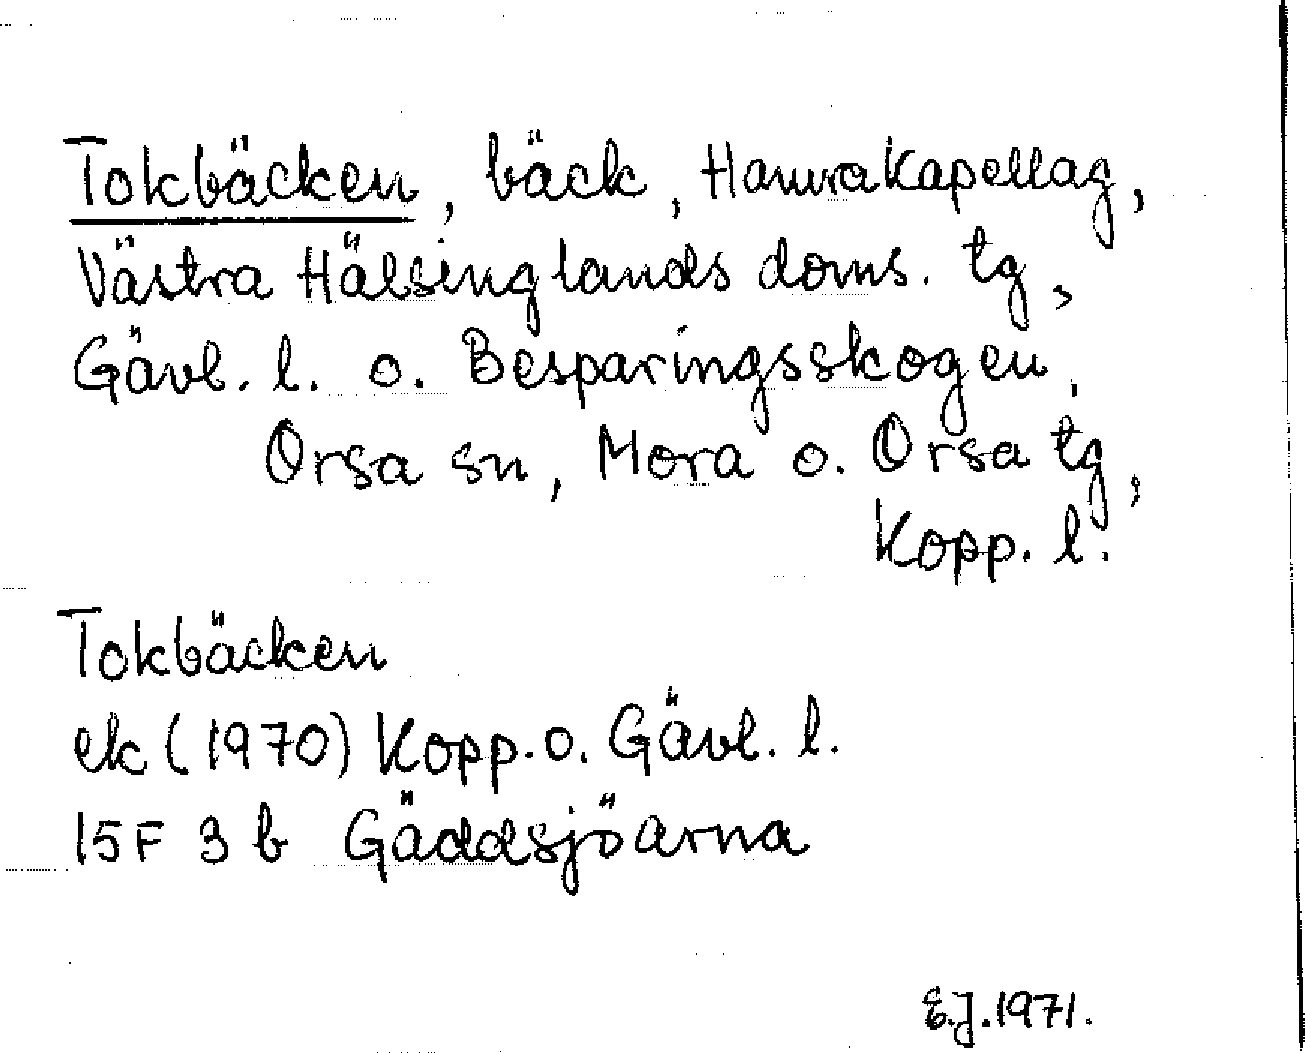 Tokbäcken, bäck, Hamra Kapellag,
Västra Hälsinglands doms. tg,
Gävl. l. o. Besparingsskogen,
Orsa sn, Mora o. Orsa tg,
Kopp. l.
Tokbäcken
ek (1970) Kopp. o. Gävl. l.
15F 3 b Gäddsjöarna
E.J. 1971.